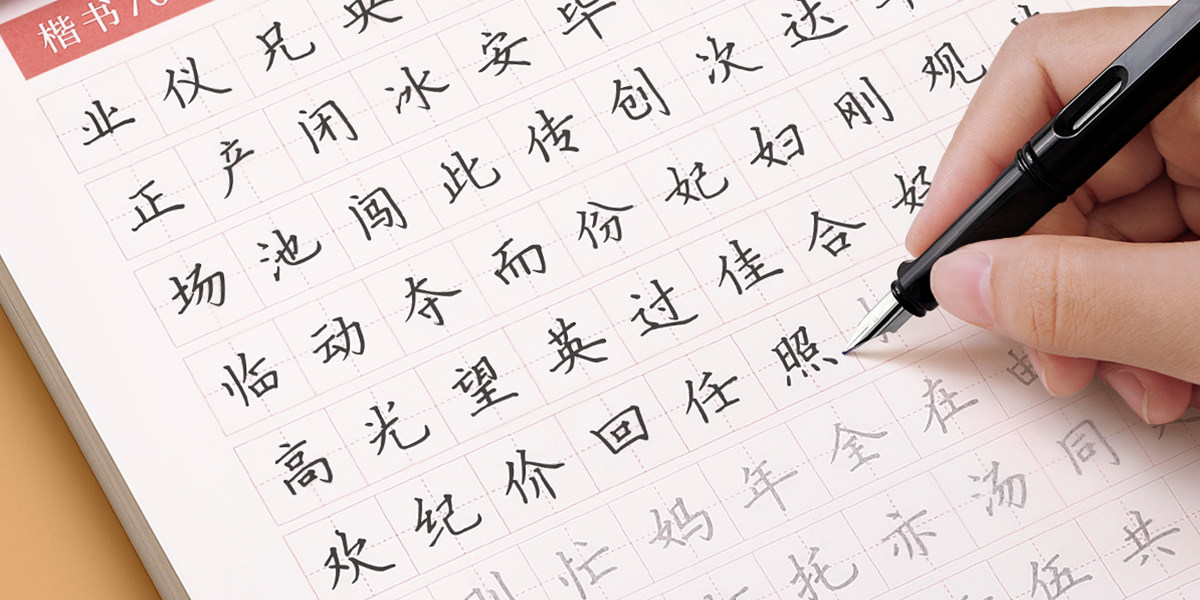 楷书
业仪兄英
正产闭冰安毕
场池闯此传创次达
临动夺而份妃妇刚观
高光望英过佳合好
欢纪价回任照
忙妈年全在曲
托亦汤同
伍共